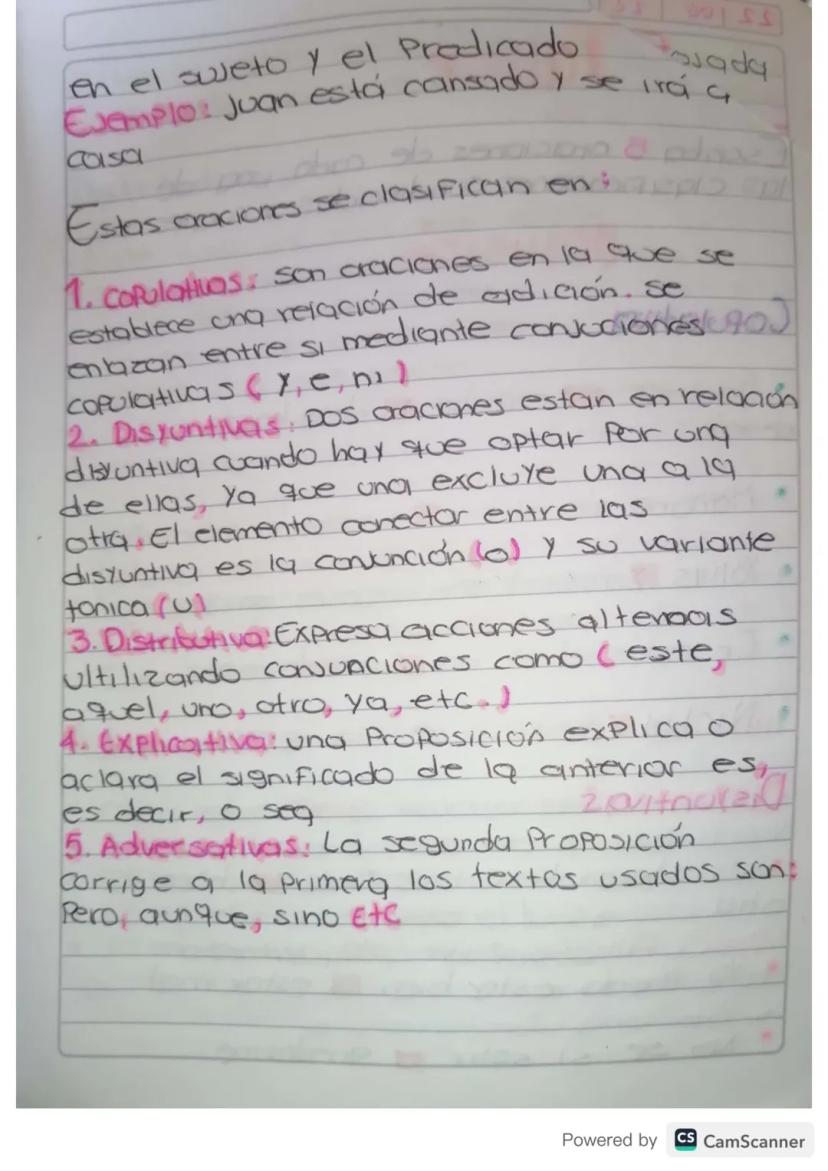 en el sujeto y el Predicado
Ejemplo: Juan está cansado y se irá a
casa
Estas oraciones se clasifican en:
1. Copulativas: son oraciones en la que se
establece una relación de adición. se
enlazan entre si mediante
copulativas (y, e, ni)
2. Disyuntivas: Dos oraciones estan en relación
disyuntiva cuando hay que optar Por una
de ellas, Ya que una excluye una a la
otra. El elemento conector entre las
disyuntiva es la conjunción (o) y su variante
tonica (u)
3. Distributiva: Expresa acciones
ultilizando conjunciones como (este,
aquel, uno, otro, ya, etc.)
4. Explicativa: una Proposición explica o
aclara el significado de la anterior es,
es decir, o sea
5. Adversativas: La segunda Proposición
corrige a la primera los textos usados son:
Pero, aunque, sino Etc
Powered by CS CamScanner